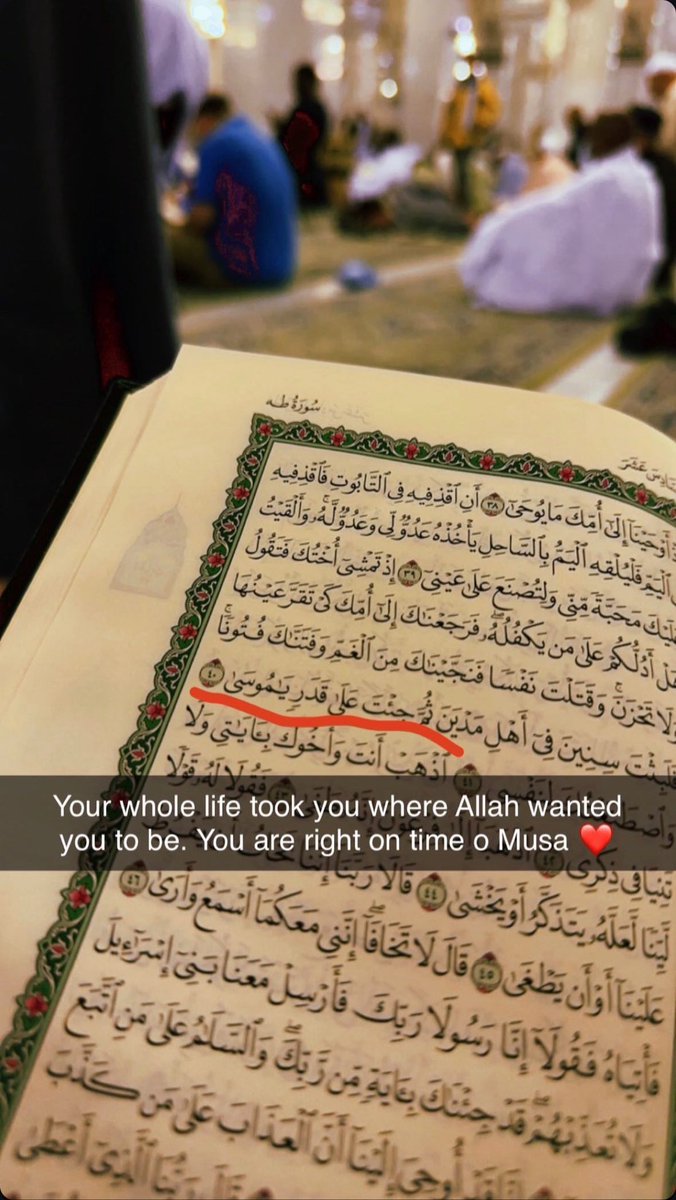 سُورَةُ طه
عَشَرَ
أَوْحَيْنَآ إِلَىٰٓ أُمِّكَ مَا يُوحَىٰٓ ٣٨ أَنِ ٱقْذِفِيهِ فِى ٱلتَّابُوتِ فَٱقْذِفِيهِ
ٱلْيَمِّ فَلْيُلْقِهِ ٱلْيَمُّ بِٱلسَّاحِلِ يَأْخُذْهُ عَدُوٌّ لِّى وَعَدُوٌّ لَّهُۥ ۚ وَأَلْقَيْتُ
مَحَبَّةً مِّنِّى وَلِتُصْنَعَ عَلَىٰ عَيْنِىٓ ٣٩ إِذْ تَمْشِىٓ أُخْتُكَ فَتَقُولُ
هَلْ أَدُلُّكُمْ عَلَىٰ مَن يَكْفُلُهُۥ ۖ فَرَجَعْنَٰكَ إِلَىٰٓ أُمِّكَ كَىْ تَقَرَّ عَيْنُهَا
وَلَا تَحْزَنَ ۚ وَقَتَلْتَ نَفْسًا فَنَجَّيْنَٰكَ مِنَ ٱلْغَمِّ وَفَتَنَّٰكَ فُتُونًا ۚ
فَلَبِثْتَ سِنِينَ فِىٓ أَهْلِ مَدْيَنَ ثُمَّ جِئْتَ عَلَىٰ قَدَرٍ يَٰمُوسَىٰ ٤٠
وَٱصْطَنَعْتُكَ لِنَفْسِى ٤١ ٱذْهَبْ أَنتَ وَأَخُوكَ بِـَٔايَٰتِى وَلَا
Your whole life took you where Allah wanted
you to be. You are right on time o Musa ❤️
تَنِيَا فِى ذِكْرِى ٤٢
فَقُولَا لَهُۥ قَوْلًا
لَّيِّنًا لَّعَلَّهُۥ يَتَذَكَّرُ أَوْ يَخْشَىٰ ٤٤ قَالَا رَبَّنَآ
عَلَيْنَآ أَوْ أَن يَطْغَىٰ ٤٥ قَالَ لَا تَخَافَآ ۖ إِنَّنِى مَعَكُمَآ أَسْمَعُ وَأَرَىٰ ٤٦
فَأْتِيَاهُ فَقُولَآ إِنَّا رَسُولَا رَبِّكَ فَأَرْسِلْ مَعَنَا بَنِىٓ إِسْرَٰٓءِيلَ
وَلَا تُعَذِّبْهُمْ ۖ قَدْ جِئْنَٰكَ بِـَٔايَةٍ مِّن رَّبِّكَ ۖ وَٱلسَّلَٰمُ عَلَىٰ مَنِ ٱتَّبَعَ
قَدْ أُوحِىَ إِلَيْنَآ أَنَّ ٱلْعَذَابَ عَلَىٰ مَن كَذَّبَ
رَبُّنَا ٱلَّذِىٓ أَعْطَىٰ